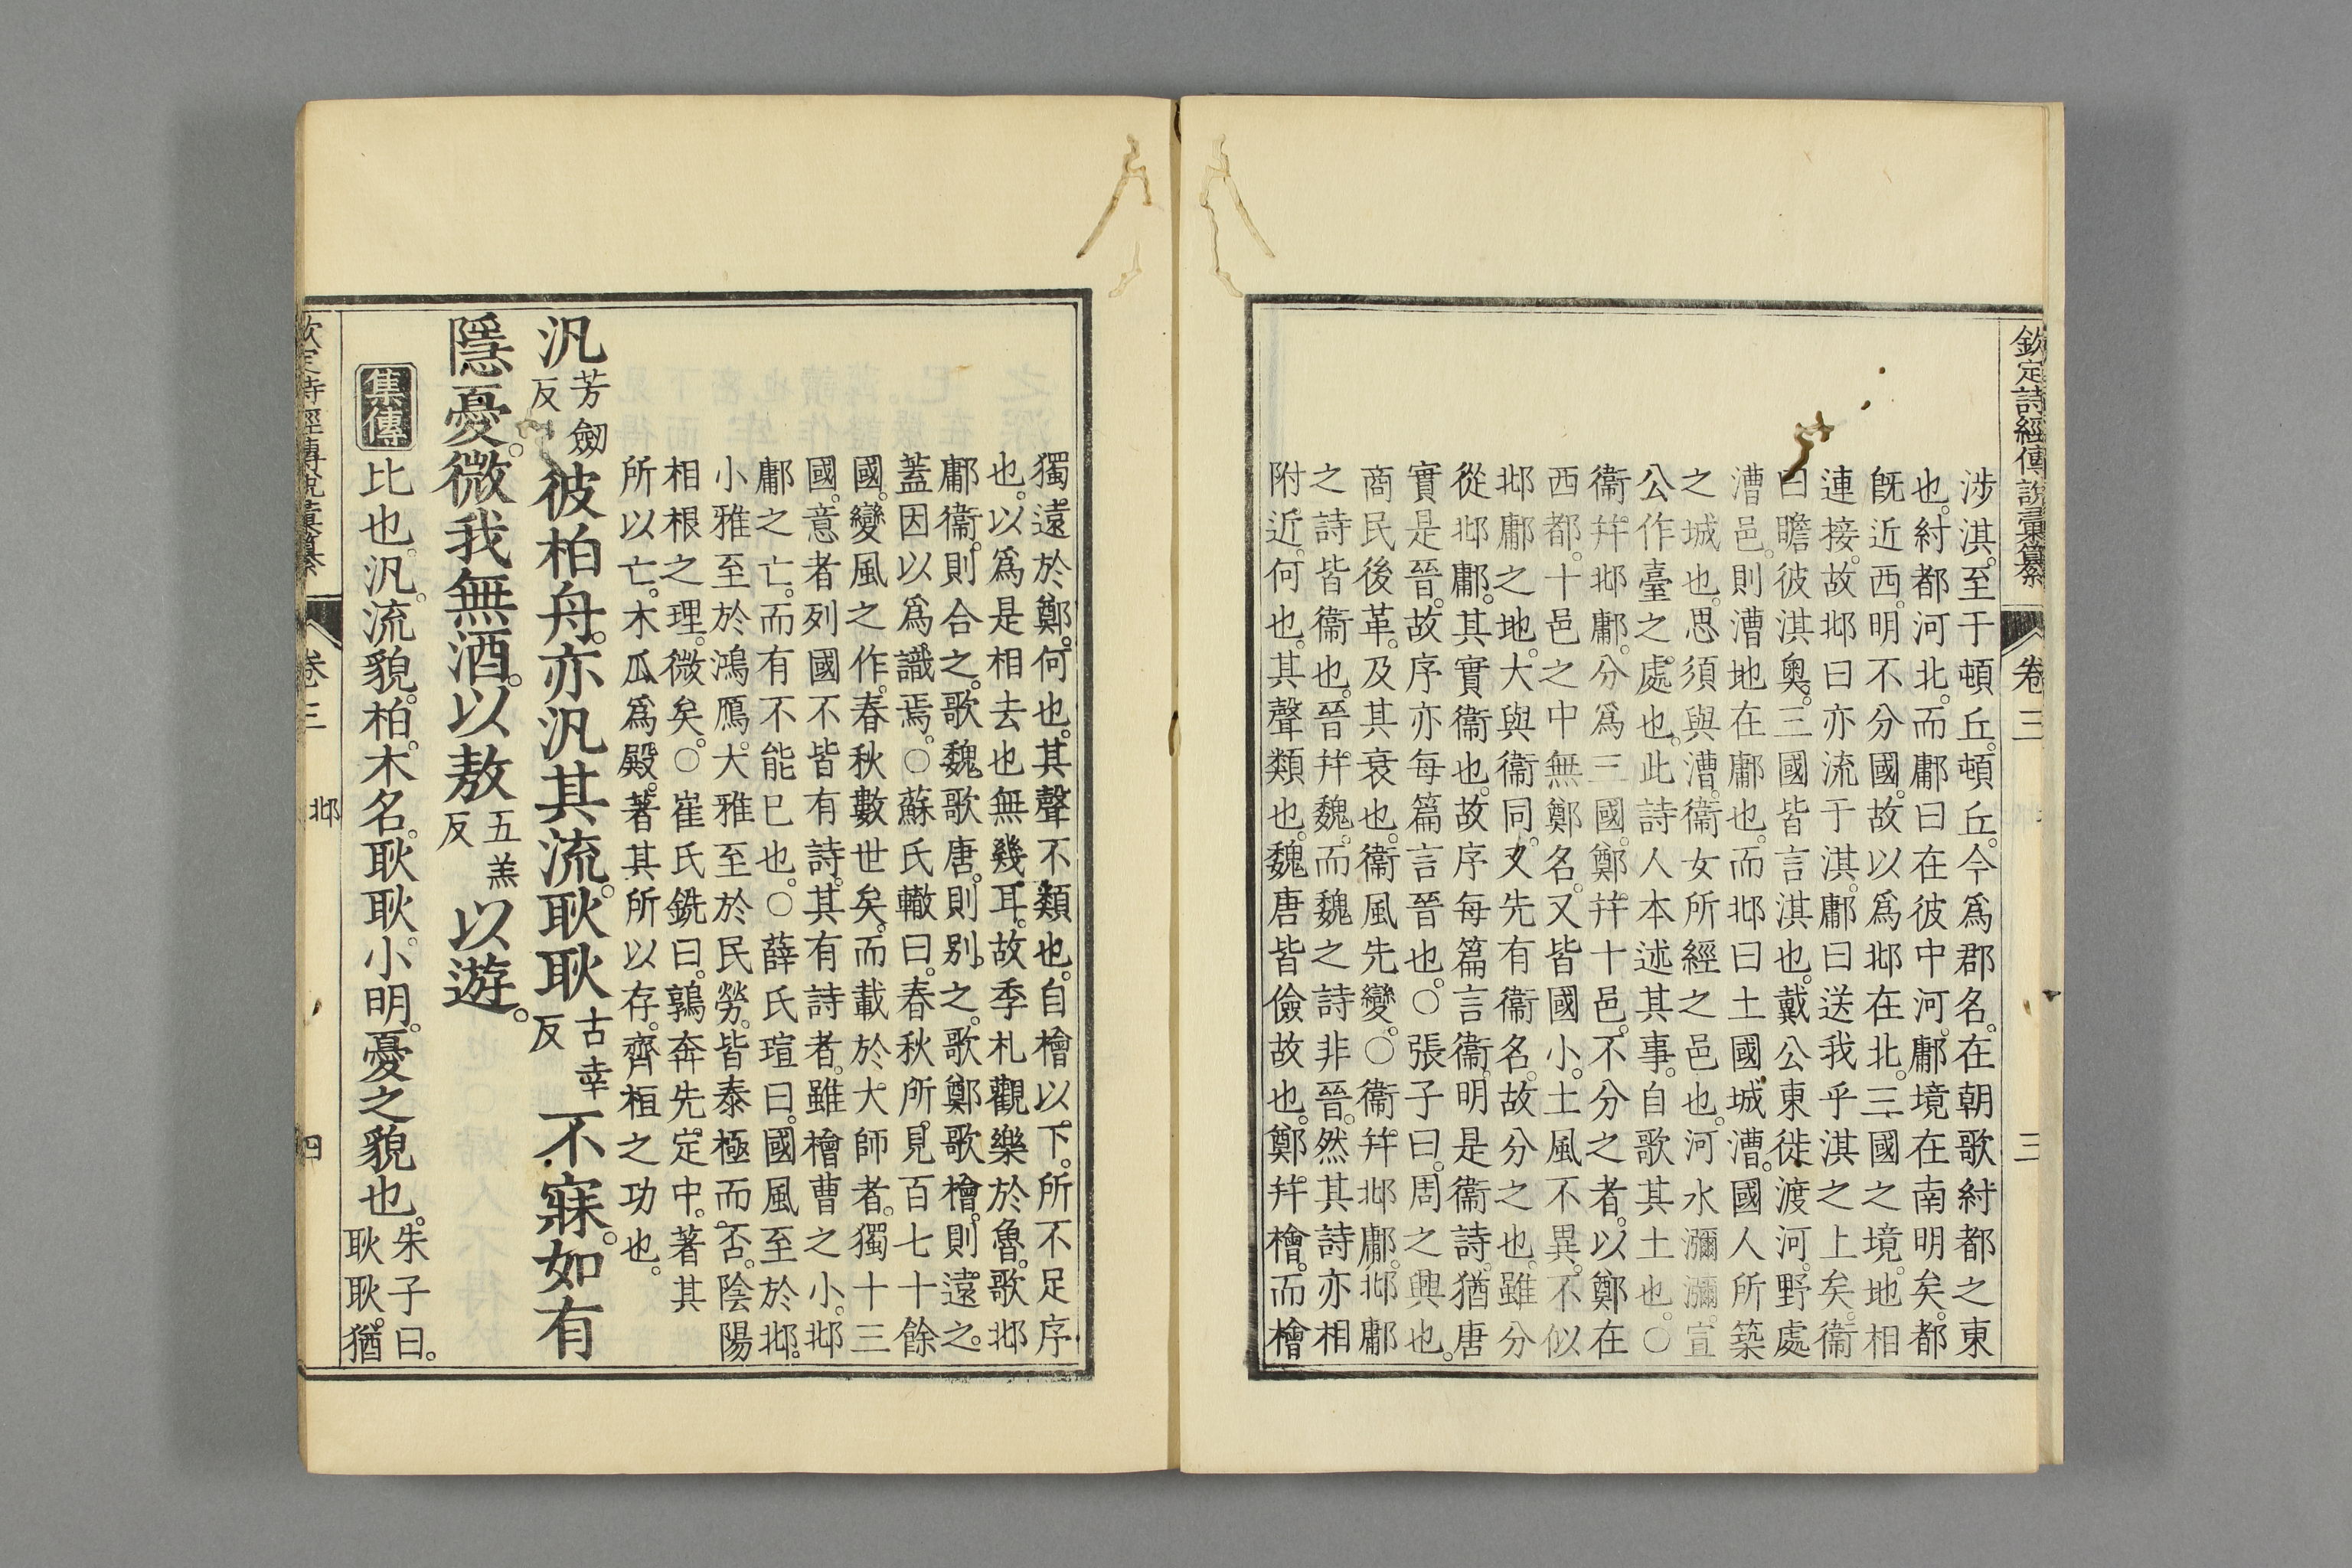 欽定詩經傳說彙纂 卷三 三
涉淇。至于頓丘。頓丘。今爲郡名。在朝歌紂都之東
也。紂都河北。而鄘曰在彼中河。鄘境在南明矣。都
旣近西。明不分國。故以爲邶在北。三國之境。地相
連接。故邶曰亦流于淇。鄘曰送我乎淇之上矣。衞
曰瞻彼淇奧。三國皆言淇也。戴公東徙渡河。野處
漕邑。則漕地在鄘也。而邶曰土國城漕。國人所築
之城也。思須與漕。衞女所經之邑也。河水瀰瀰。宣
公作臺之處也。此詩人本述其事。自歌其土也。○
衞幷邶鄘。分爲三國。鄭幷十邑。不分之者。以鄭在
西都。十邑之中無鄭名。又皆國小。土風不異。不似
邶鄘之地。大與衞同。又先有衞名。故分之也。雖分
從邶鄘。其實衞也。故序每篇言衞。明是衞詩。猶唐
實是晉。故序亦每篇言晉也。○張子曰。周之興也。
商民後革。及其衰也。衞風先變。○衞幷邶鄘。邶鄘
之詩皆衞也。晉幷魏。而魏之詩非晉。然其詩亦相
附近。何也。其聲類也。魏唐皆儉故也。鄭幷檜。而檜
獨遠於鄭。何也。其聲不類也。自檜以下。所不足序
也。以爲是相去也無幾耳。故季札觀樂於魯。歌邶
鄘衞。則合之。歌魏歌唐。則別之。歌鄭歌檜。則遠之。
蓋因以爲識焉。○蘇氏轍曰。春秋所見百七十餘
國。變風之作。春秋數世矣。而載於大師者。獨十三
國。意者列國不皆有詩。其有詩者。雖檜曹之小。邶
鄘之亡。而有不能已也。○薛氏瑄曰。國風至於邶。
小雅至於鴻鴈。大雅至於民勞。皆泰極而否。陰陽
相根之理。微矣。○崔氏銑曰。鶉奔先定中。著其
所以亡。木瓜爲殿。著其所以存。齊桓之功也。
汎芳劒反彼柏舟。亦汎其流。耿耿古幸反不寐。如有
隱憂。微我無酒。以敖五羔反以遊。
集傳 比也。汎。流貌。柏。木名。耿耿。小明。憂之貌也。朱子曰。耿耿。猶
欽定詩經傳說彙纂 卷三 邶 四